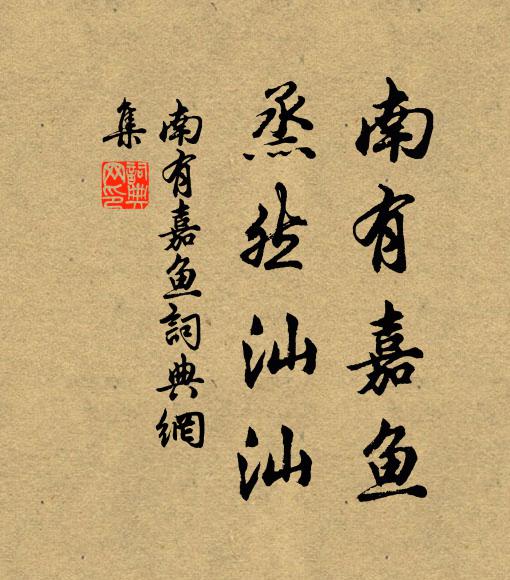 南有嘉鱼
烝然汕汕
南有嘉鱼詞典網
集
詞典
网印